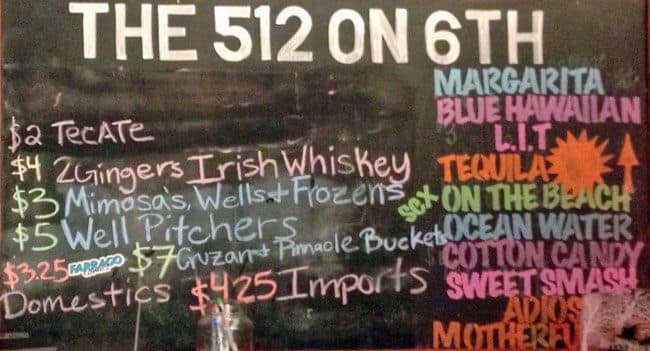 THE 512 ON 6TH
$2 TECATE
$4 2Gingers Irish Whiskey
$3 Mimosa's, Wells + Frozens
$5 Well Pitchers
$7 Cruzan + Pinnacle Buckets
$3.25 FARRAGO
Domestics $4.25 Imports
MARGARITA
BLUE HAWAIIAN
L.I.T
TEQUILA
SEX ON THE BEACH
OCEAN WATER
COTTON CANDY
SWEET SMASH
ADIOS
MOTHERFU